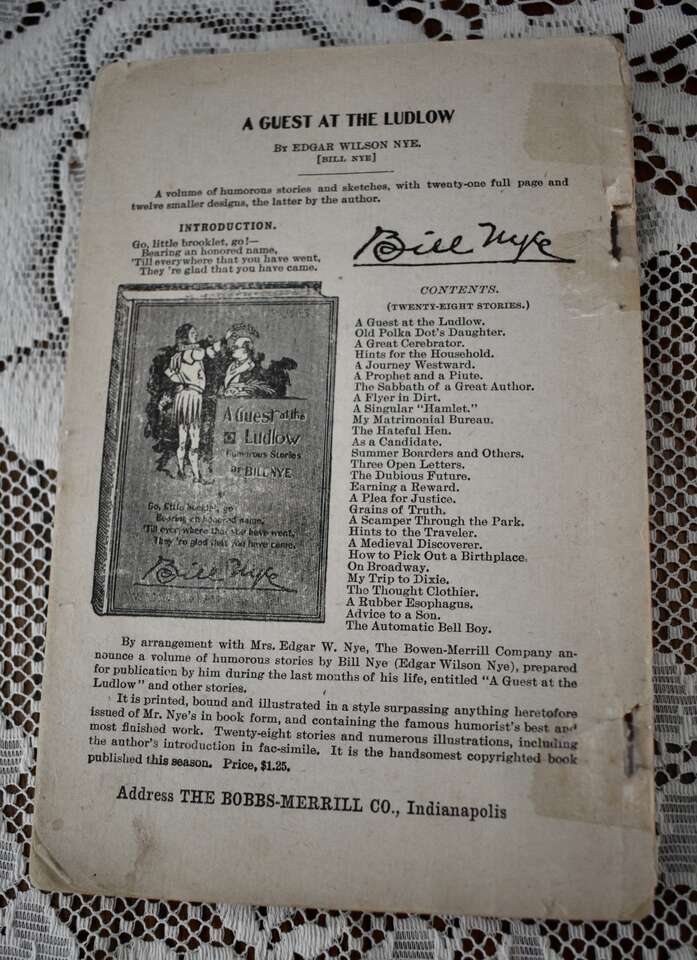 A GUEST AT THE LUDLOW
BY EDGAR WILSON NYE.
[BILL NYE]
A volume of humorous stories and sketches, with twenty-one full page and
twelve smaller designs, the latter by the author.
INTRODUCTION.
Go, little brooklet, go!—
Bearing an honored name,
'Till everywhere that you have went,
They 're glad that you have came.
Bill Nye
A Guest at the
Ludlow
Humorous Stories
BY BILL NYE
Go, little booklet, go
Bearing an honored name,
'Till everywhere that you have went,
They 're glad that you have came.
Bill Nye
CONTENTS.
(TWENTY-EIGHT STORIES.)
A Guest at the Ludlow.
Old Polka Dot's Daughter.
A Great Cerebrator.
Hints for the Household.
A Journey Westward.
A Prophet and a Piute.
The Sabbath of a Great Author.
A Flyer in Dirt.
A Singular "Hamlet."
My Matrimonial Bureau.
The Hateful Hen.
As a Candidate.
Summer Boarders and Others.
Three Open Letters.
The Dubious Future.
Earning a Reward.
A Plea for Justice.
Grains of Truth.
A Scamper Through the Park.
Hints to the Traveler.
A Medieval Discoverer.
How to Pick Out a Birthplace.
On Broadway.
My Trip to Dixie.
The Thought Clothier.
A Rubber Esophagus.
Advice to a Son.
The Automatic Bell Boy.
By arrangement with Mrs. Edgar W. Nye, The Bowen-Merrill Company an-
nounce a volume of humorous stories by Bill Nye (Edgar Wilson Nye), prepared
for publication by him during the last months of his life, entitled "A Guest at the
Ludlow" and other stories.
It is printed, bound and illustrated in a style surpassing anything heretofore
issued of Mr. Nye's in book form, and containing the famous humorist's best and
most finished work. Twenty-eight stories and numerous illustrations, including
the author's introduction in fac-simile. It is the handsomest copyrighted book
published this season. Price, $1.25.
Address THE BOBBS-MERRILL CO., Indianapolis